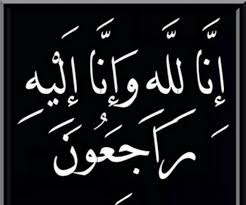 إِنَّا للَّه وَإِنَّا إِلَيْهِ
رَاَجَعُونَ